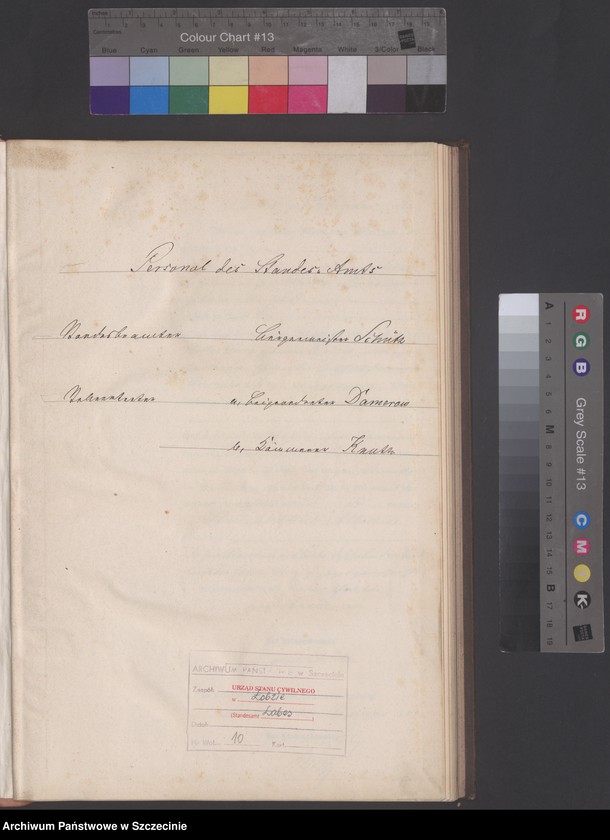 Inches
Centimetres
Colour Chart #13
Blue Cyan Green Yellow Red Magenta White 3/Color Black
Personal des Standes-Amts
Standesbeamter Bürgermeister Schütz
Stellvertreter a, Beigeordneter Damerow
b, Kämmerer Knuth
ARCHIWUM PAŃSTWOWE w Szczecinie
Zespół: URZĄD STANU CYWILNEGO
w Łobzie
(Standesamt Labes)
10
R G B
Grey Scale #13
C M Y K
A 1 2 3 4 5 6 M 8 9 10 11 12 13 14 15 B 17 18 19
Archiwum Państwowe w Szczecinie